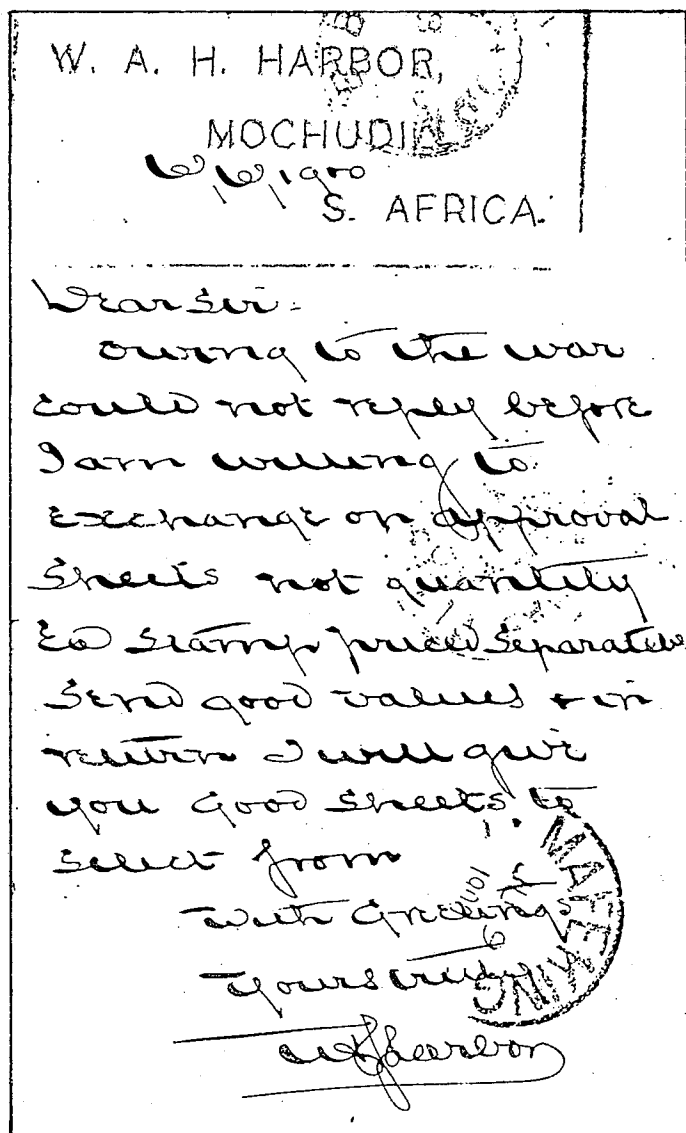 W. A. H. HARBOR,
MOCHUDI
6,6,1900
S. AFRICA.
Dear Sir -
owing to the war
could not reply before
I am willing to
exchange on approval
sheets not quantity
Ea stamp priced separately
send good values & in
return I will give
you good sheets to
select from
with Greetings
yours truly
Harbor
MAFEKING